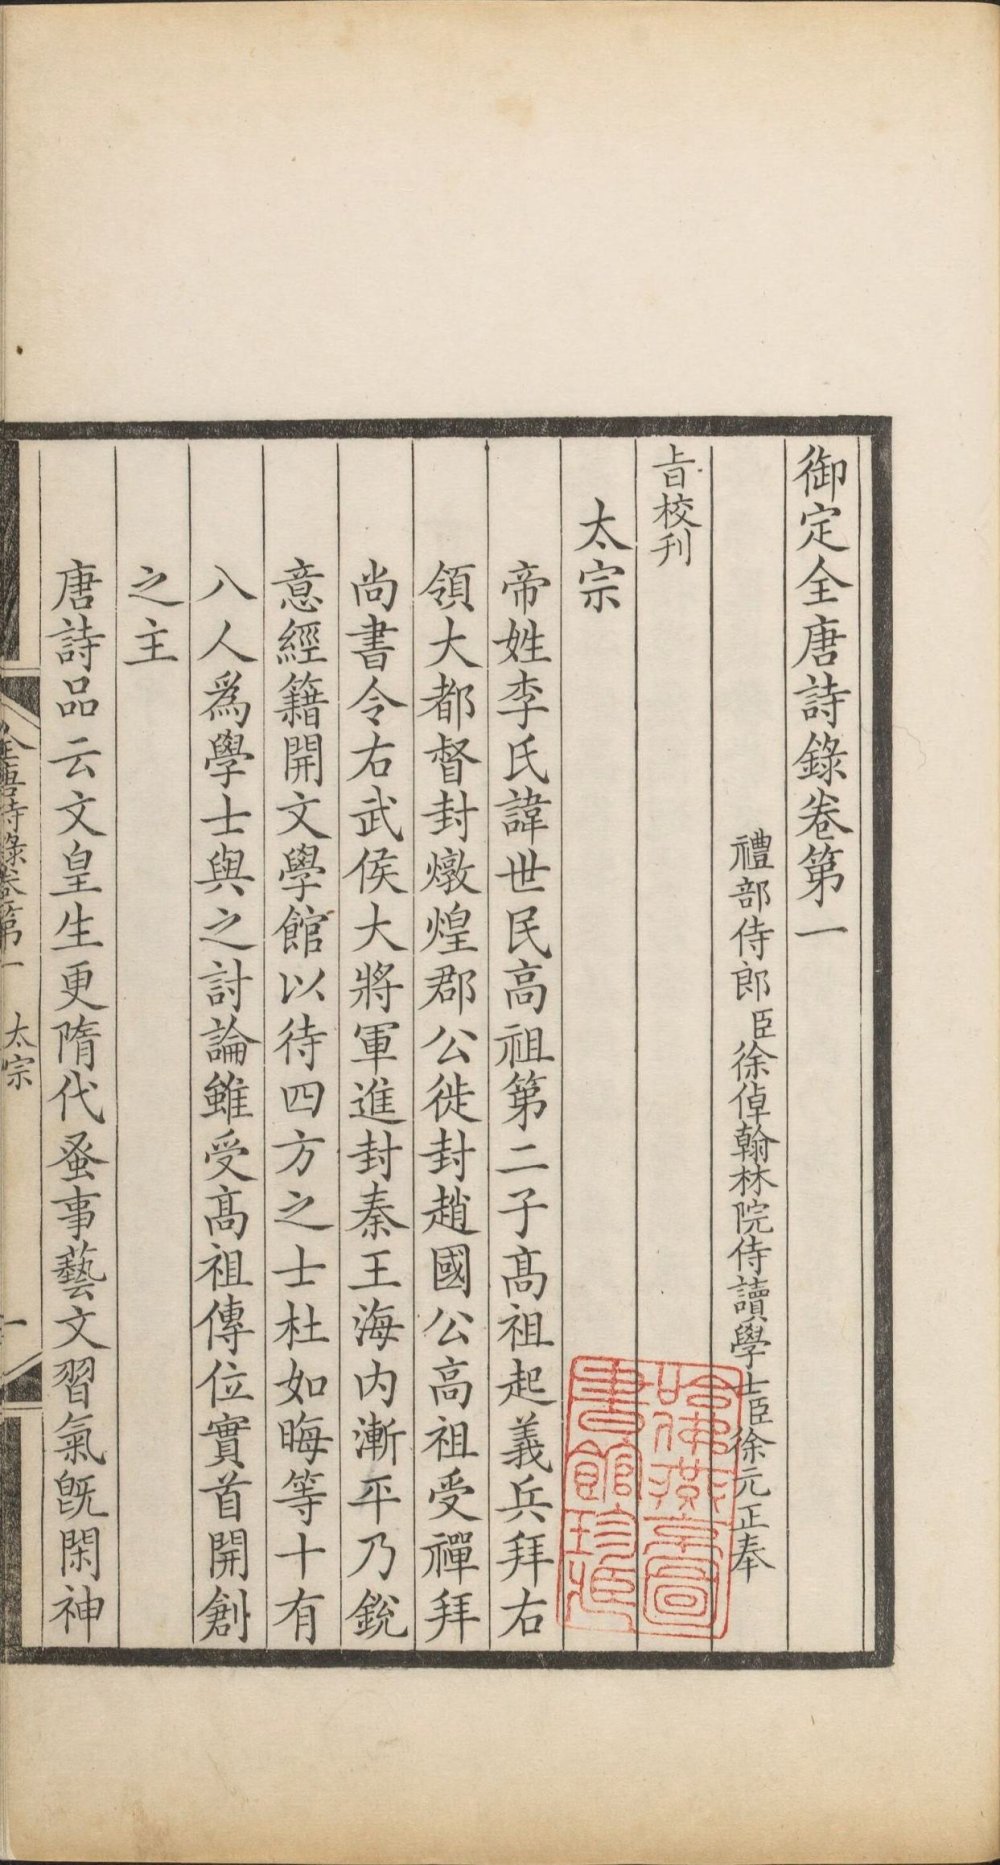 御定全唐詩錄卷第一
禮部侍郎臣徐倬翰林院侍讀學士臣徐元正奉
旨校刊
太宗
帝姓李氏諱世民高祖第二子髙祖起義兵拜右
領大都督封燉煌郡公徙封趙國公高祖受禪拜
尚書令右武侯大將軍進封秦王海内漸平乃銳
意經籍開文學館以待四方之士杜如晦等十有
八人爲學士與之討論雖受髙祖傳位實首開創
之主
唐詩品云文皇生更隋代蚤事藝文習氣旣閑神
全唐詩錄卷第一 太宗 一
哈佛燕京圖
書館珍藏